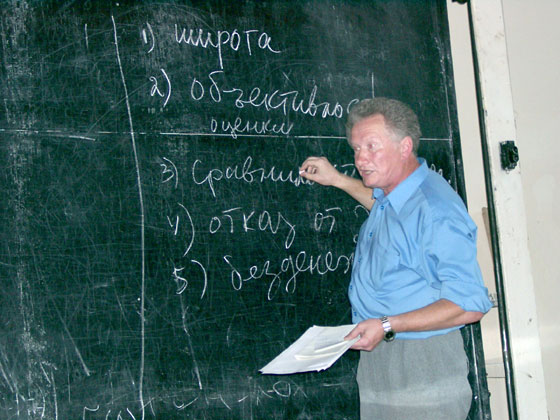 1) широта
2) объективнос
оценки
3) Сравним
4) отказ от
5) безденеж